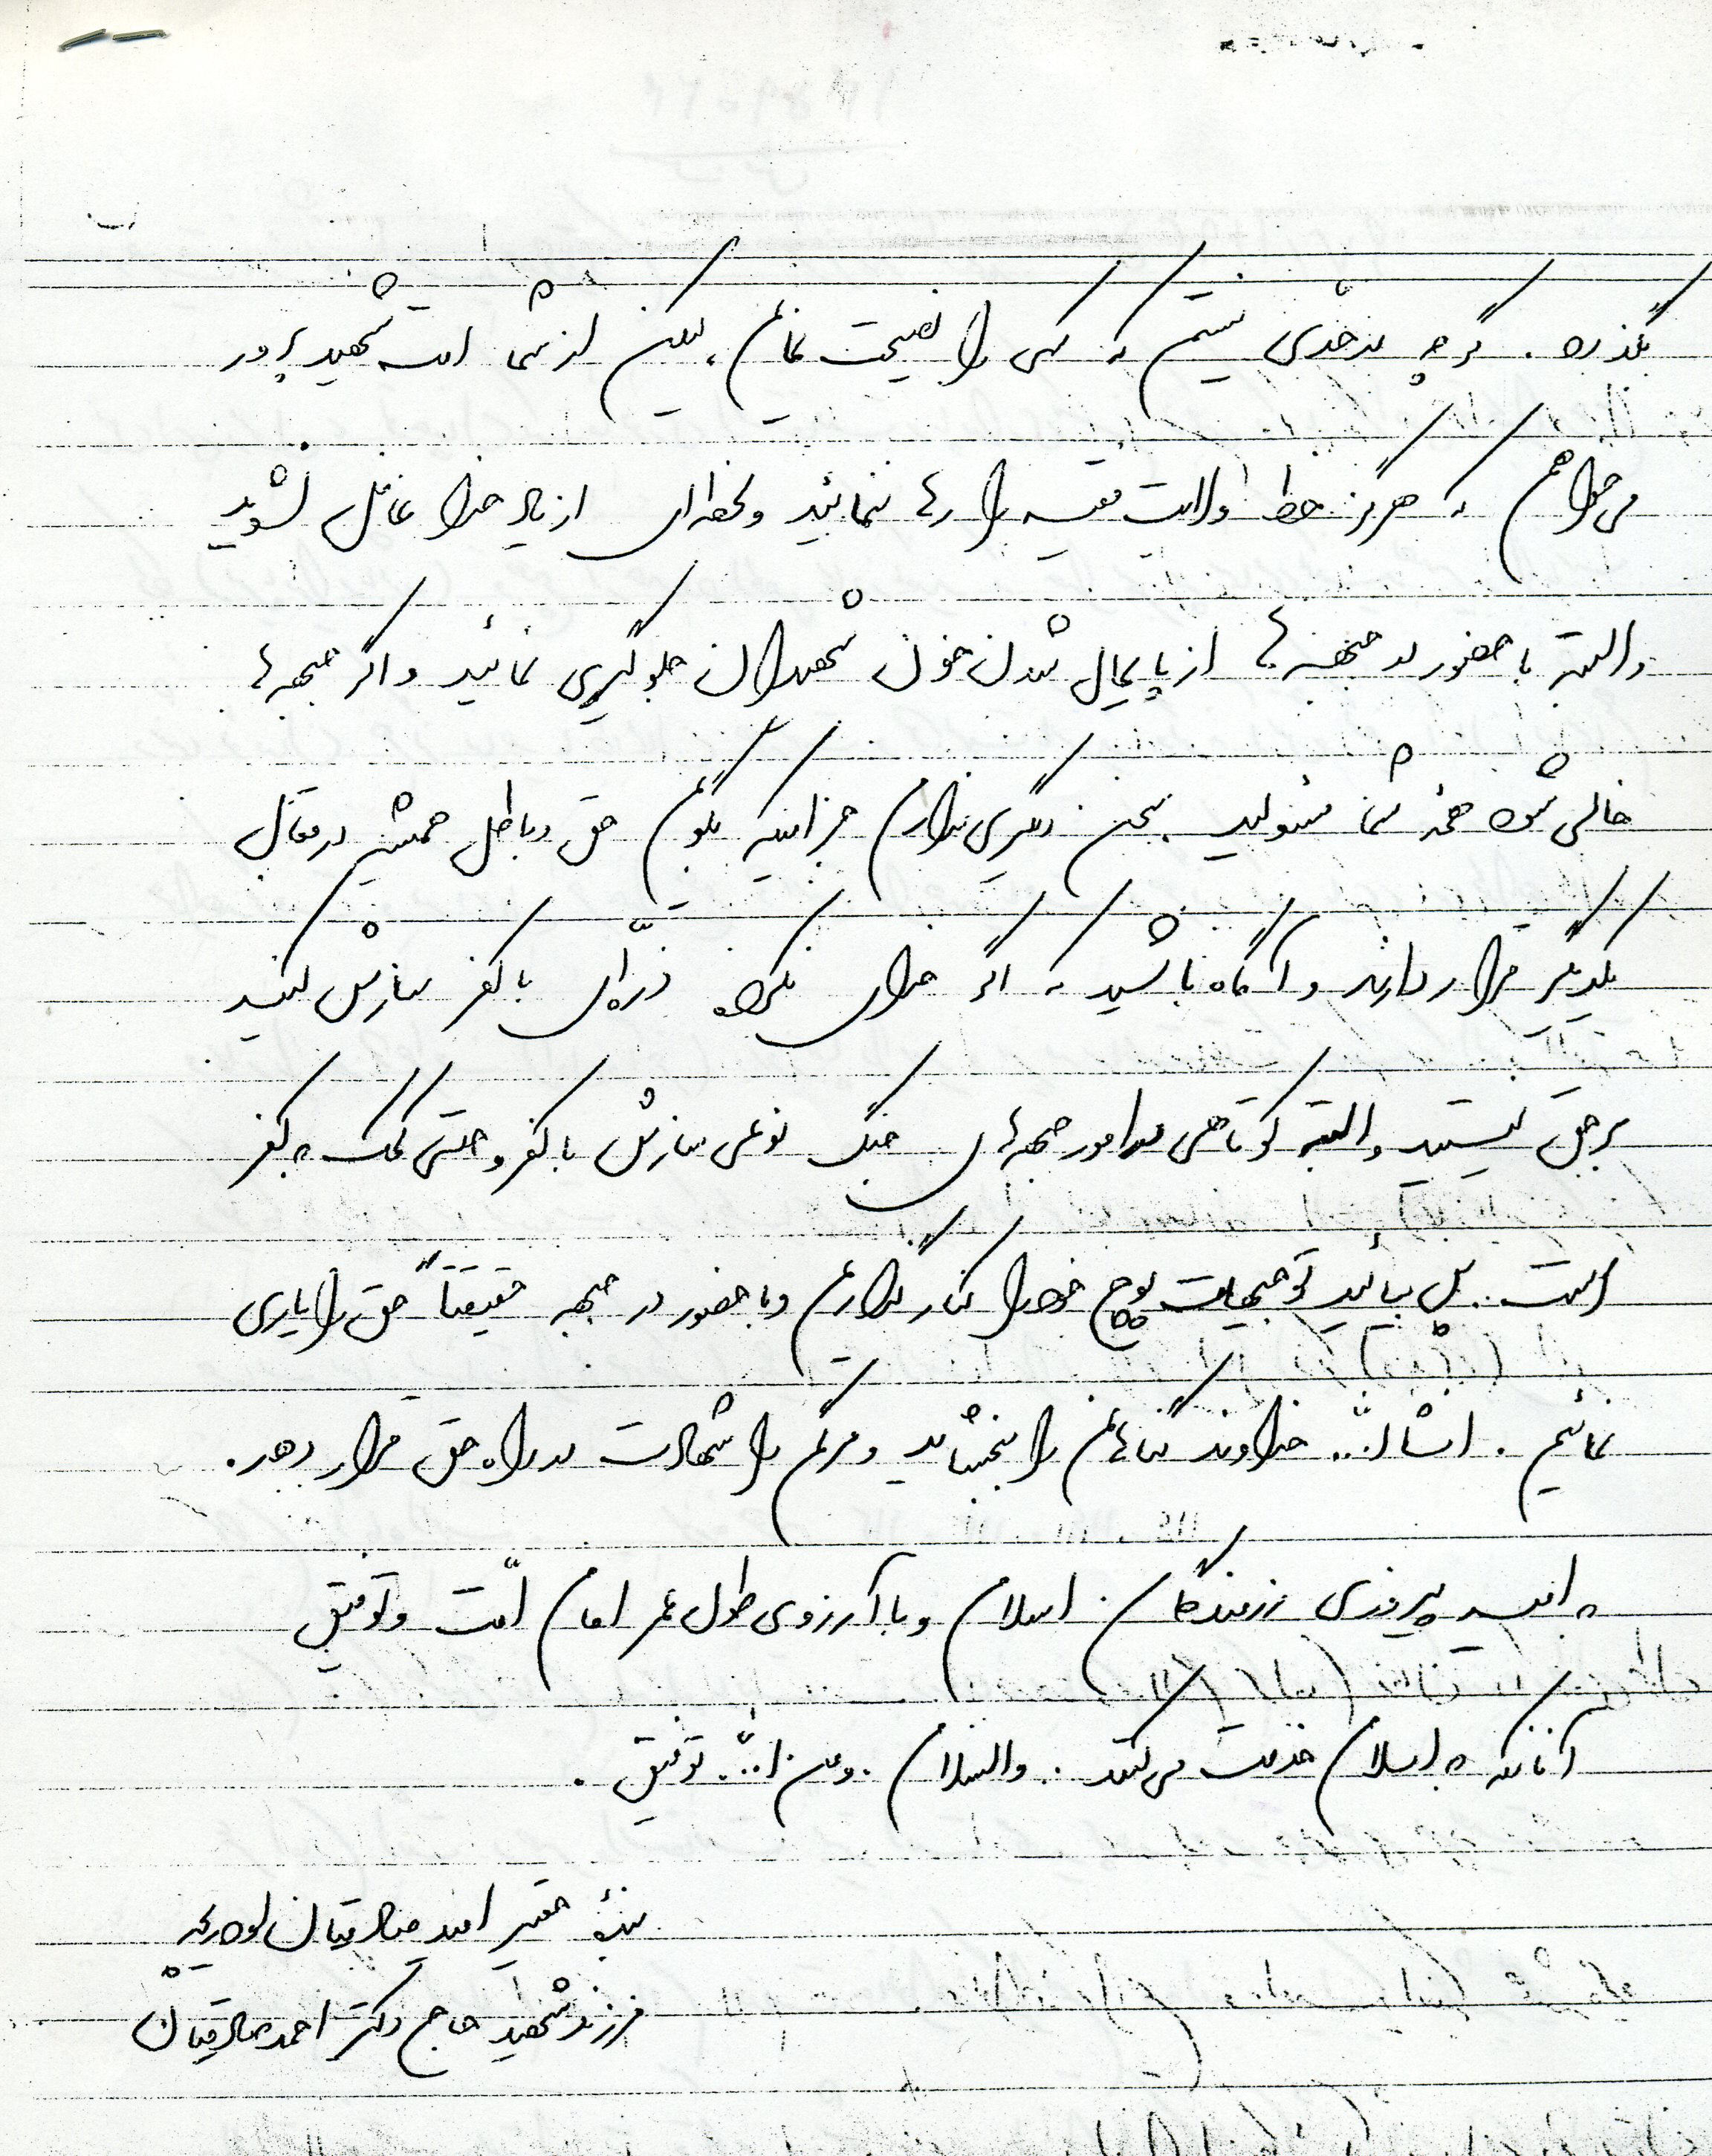 بگذرد. گرچه در حدی نیستم که کسی را نصیحت نمایم، لیکن از شما امت شهید پرور
می خواهم که هرگز خط ولایت فقیه را رها ننمائید و لحظه ای از یاد خدا غافل نشوید
و البته با حضور در جبهه ها از پایمال شدن خون شهیدان جلوگیری نمائید و اگر جبهه ها
خالی شود همه شما مسئولید. سخن دیگری ندارم جز اینکه بگویم حق و باطل همیشه در مقابل
یکدیگر قرار دارند و آگاه باشید که اگر خدای نکرده ذرّه ای با کفر سازش کنید
بر حق نیستید و البته کوتاهی در امور جبهه های جنگ نوعی سازش با کفر و حتی کمک به کفر
است.. پس بیائید توجیهات پوچ خود را کنار گذاریم و با حضور در جبهه حقیقتاً حق را یاری
نمائیم. انشاا... خداوند گناهانم را ببخشاید و مرگم را شهادت در راه حق قرار دهد.
به امید پیروزی رزمندگان اسلام و با آرزوی طول عمر امام امّت و توفیق
آنانکه به اسلام خدمت می کنند. والسلام. و من ا... توفیق.
بندهٔ حقیر امید صادقیان
فرزند شهید حاج دکتر احمد صادقیان